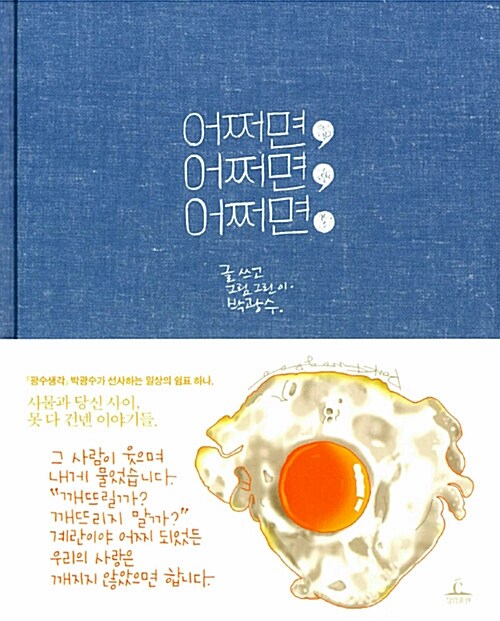 어쩌면,
어쩌면,
어쩌면.
글 쓰고
그림 그린 이.
박광수.
『광수생각』 박광수가 선사하는 일상의 쉼표 하나.
사물과 당신 사이,
못 다 건넨 이야기들.
그 사람이 웃으며
내게 물었습니다.
“깨뜨릴까?
깨뜨리지 말까?”
계란이야 어찌 되었든
우리의 사랑은
깨지지 않았으면 합니다.